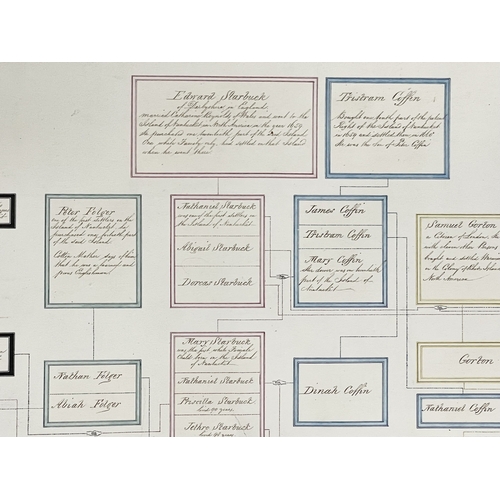 Edward Starbuck
of Derbyshire in England
married Catharine Reynolds of Wales and went to the
Island of Nantucket in North America in the year 1659
He purchased one twentieth part of the said Island
One white Family only had settled on that Island
when he went there
Tristram Coffin
Brought one tenth part of the patent
Right of the Island of Nantucket
in 1659 and settled there in 1660
He was the Son of Peter Coffin
Peter Folger
one of the first settlers in the
Island of Nantucket he
purchased one fortieth part
of the said Island
Cotton Mather says of him
that he was a learned and
pious Englishman
Nathaniel Starbuck
was one of the first settlers in
the Island of Nantucket
Abigail Starbuck
Dorcas Starbuck
James Coffin
Tristram Coffin
Mary Coffin
Her dower was one twentieth
part of the Island of
Nantucket
Samuel Gorton
a Citizen of London
and settled
in the Colony of Rhode Island
North America
Nathan Folger
Abiah Folger
Mary Starbuck
was the first white Female
Child born in the Island
of Nantucket
Nathaniel Starbuck
Priscilla Starbuck
lived 90 years
Jethro Starbuck
Dinah Coffin
Gorton
Nathaniel Coffin